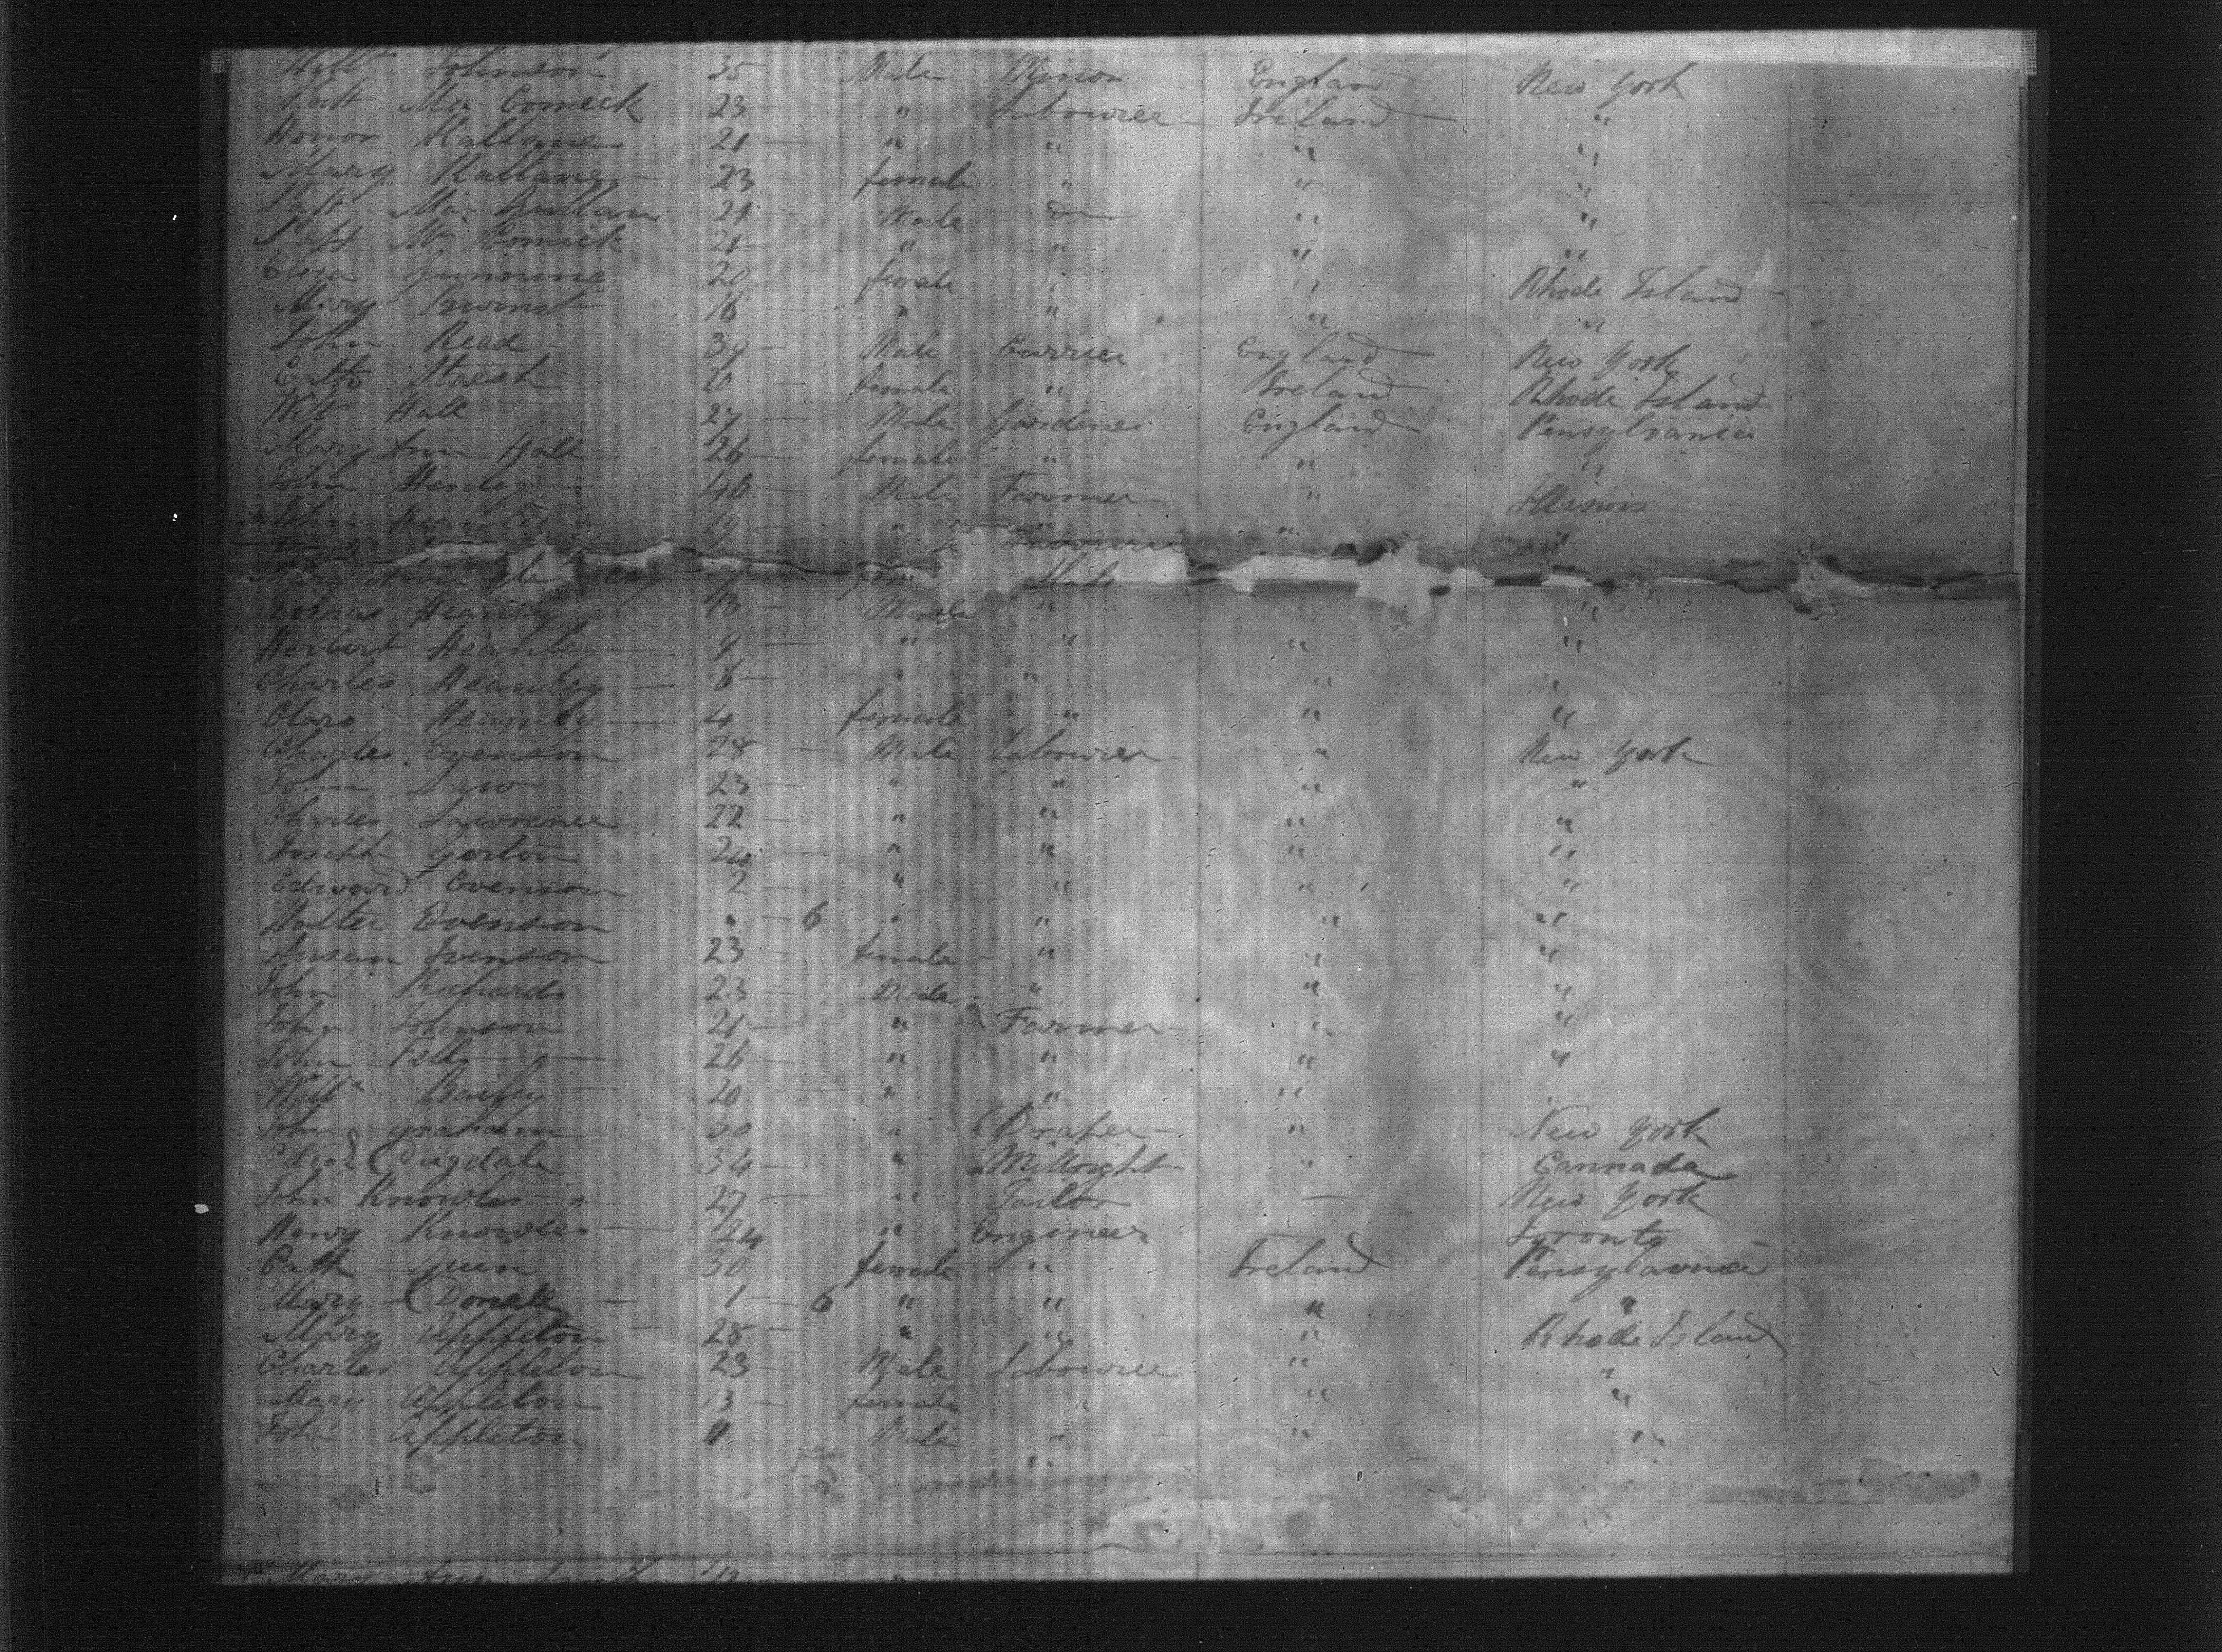 Willm Johnson 35 Male Minor England New York
Patt Mc. Comick 23 " Labourer Ireland "
Honor Kallane 21 " " " "
Mary Kallane 23 female " " "
Patt Mc. Gullan 21 Male do " "
Patt Mc Comick 21 " " " "
Eliza Gunning 20 female " " Rhode Island
Mary Burns 18 " " " "
John Read 39 Male Currier England New York
20 female " Ireland Rhode Island
Willm Hall 27 Male Gardener England Pensylvania
Mary Ann Hall 26 female " " "
John Henley 46 Male Farmer " Illinois
John Heanley 19 " Labourer " "
Mary Ann
Thomas Heanley 13 Male " " "
Herbert Heanley 9 " " " "
Charles Heanley 6 " " " "
Clara Heanley 4 female " " "
Charles Evenson 28 Male Labourer " New York
John Law 23 " " " "
Charles Lawrence 22 " " " "
Joseph Gorton 24 " " " "
Edward Evenson 2 " " " "
Walter Evenson " 6 " " " "
Susan Evenson 23 female " " "
John Richards 23 Male " " "
John Johnson 21 " Farmer " "
John Fells 26 " " " "
Willm Baily 20 " " " "
John Graham 30 " Draper " New York
Edwd Dugdale 34 " Millright " Cannada
John Knowles 27 " Tailor — New York
Henry Knowles 24 " Engineer Toronto
Cath Quen 30 female " Ireland Pensylavnia
Mary Donelly 1 6 " " " "
Mary Appleton 28 " " " Rhode Island
Charles Appleton 23 Male Labourer " "
Mary Appleton 13 female " " "
John Appleton 11 Male " " "
Mary Ann Smith